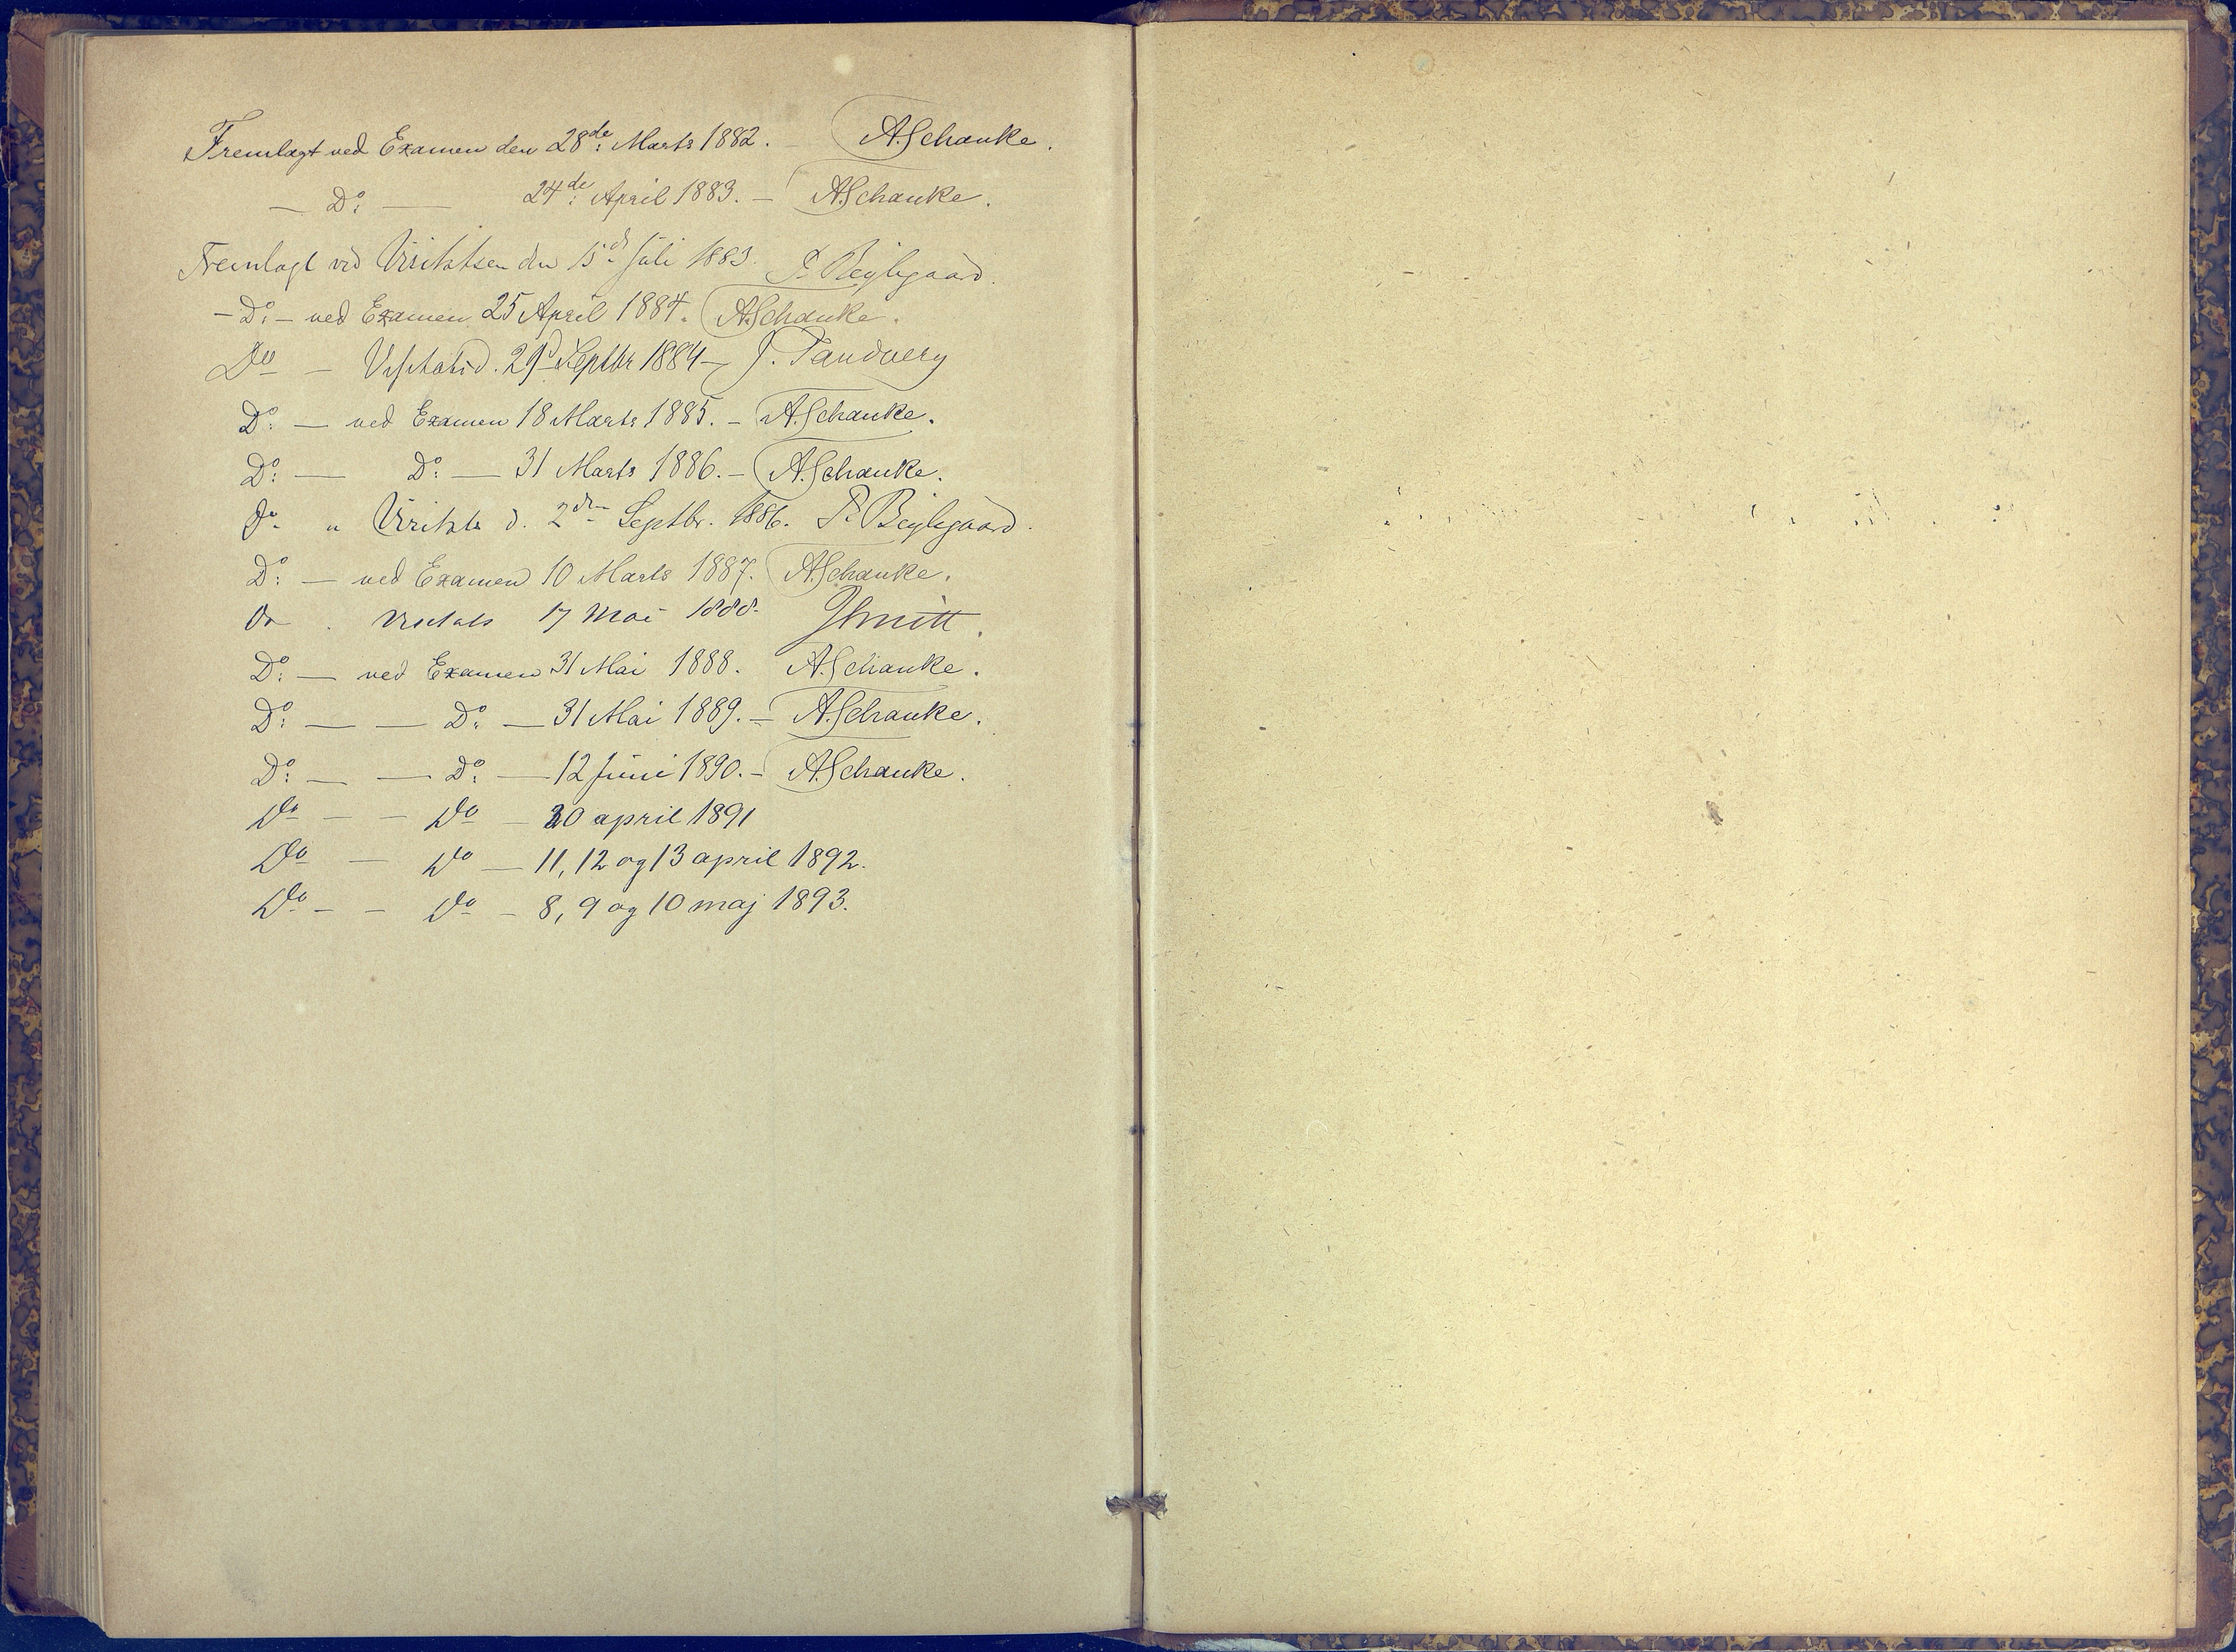 Fremlagt ved Examen den 28de: Marts 1882. – A.Schanke.
— Do: — 24de: April 1883. – A.Schanke.
Fremlagt ved Visitatsen den 15d: Juli 1883. P. Beylegaard.
– Do: – ved Examen 25 April 1884. A.Schanke.
Do – Visitats d. 29d Septbr 1884 – J. Tandberg
Do: — ved Examen 18 Marts 1885. – A.Schanke.
Do: — Do: — 31 Marts 1886. – A.Schanke.
Do " Visitats d. 2den Septbr. 1886. P. Beylegaard.
Do: — ved Examen 10 Marts 1887. A.Schanke.
Do . Visitats 17 Mai 1888.
Do: — ved Examen 31 Mai 1888. A.Schanke.
Do: — — Do: — 31 Mai 1889. – A.Schanke.
Do: — — Do: — 12 Juni 1890. – A.Schanke.
Do – – Do – 30 april 1891
Do — Do — 11, 12 og 13 april 1892.
Do – – Do – 8, 9 og 10 maj 1893.